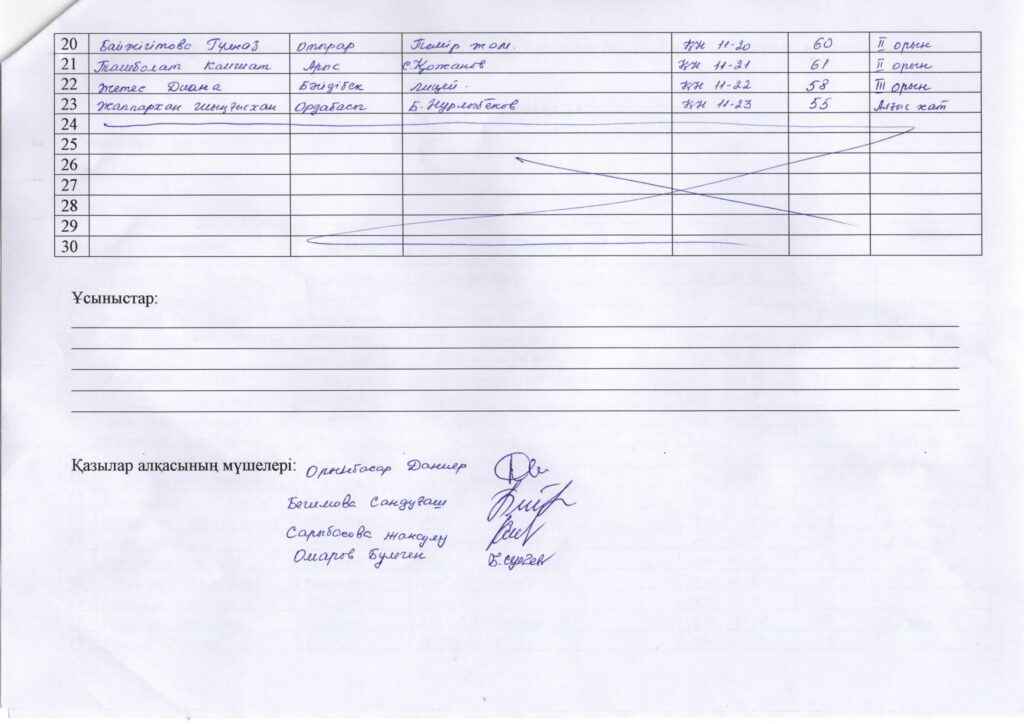 20 Байжігітова Гулназ Отырар Темір жол. КН 11-20 60 II орын
21 Ташболат Камшат Арыс С.Қожанов КН 11-21 61 II орын
22 Жетес Диана Бәйдібек лицей. КН 11-22 58 III орын
23 Жаппархан Шыңғысхан Ордабасы Б. Нұрлыбеков КН 11-23 55 Алғыс хат
24
25
26
27
28
29
30
Ұсыныстар:
Қазылар алқасының мүшелері: Орынбасар Данияр
Бегимова Сандуғаш
Сарыбасова Жансұлу
Омаров Бүлеген